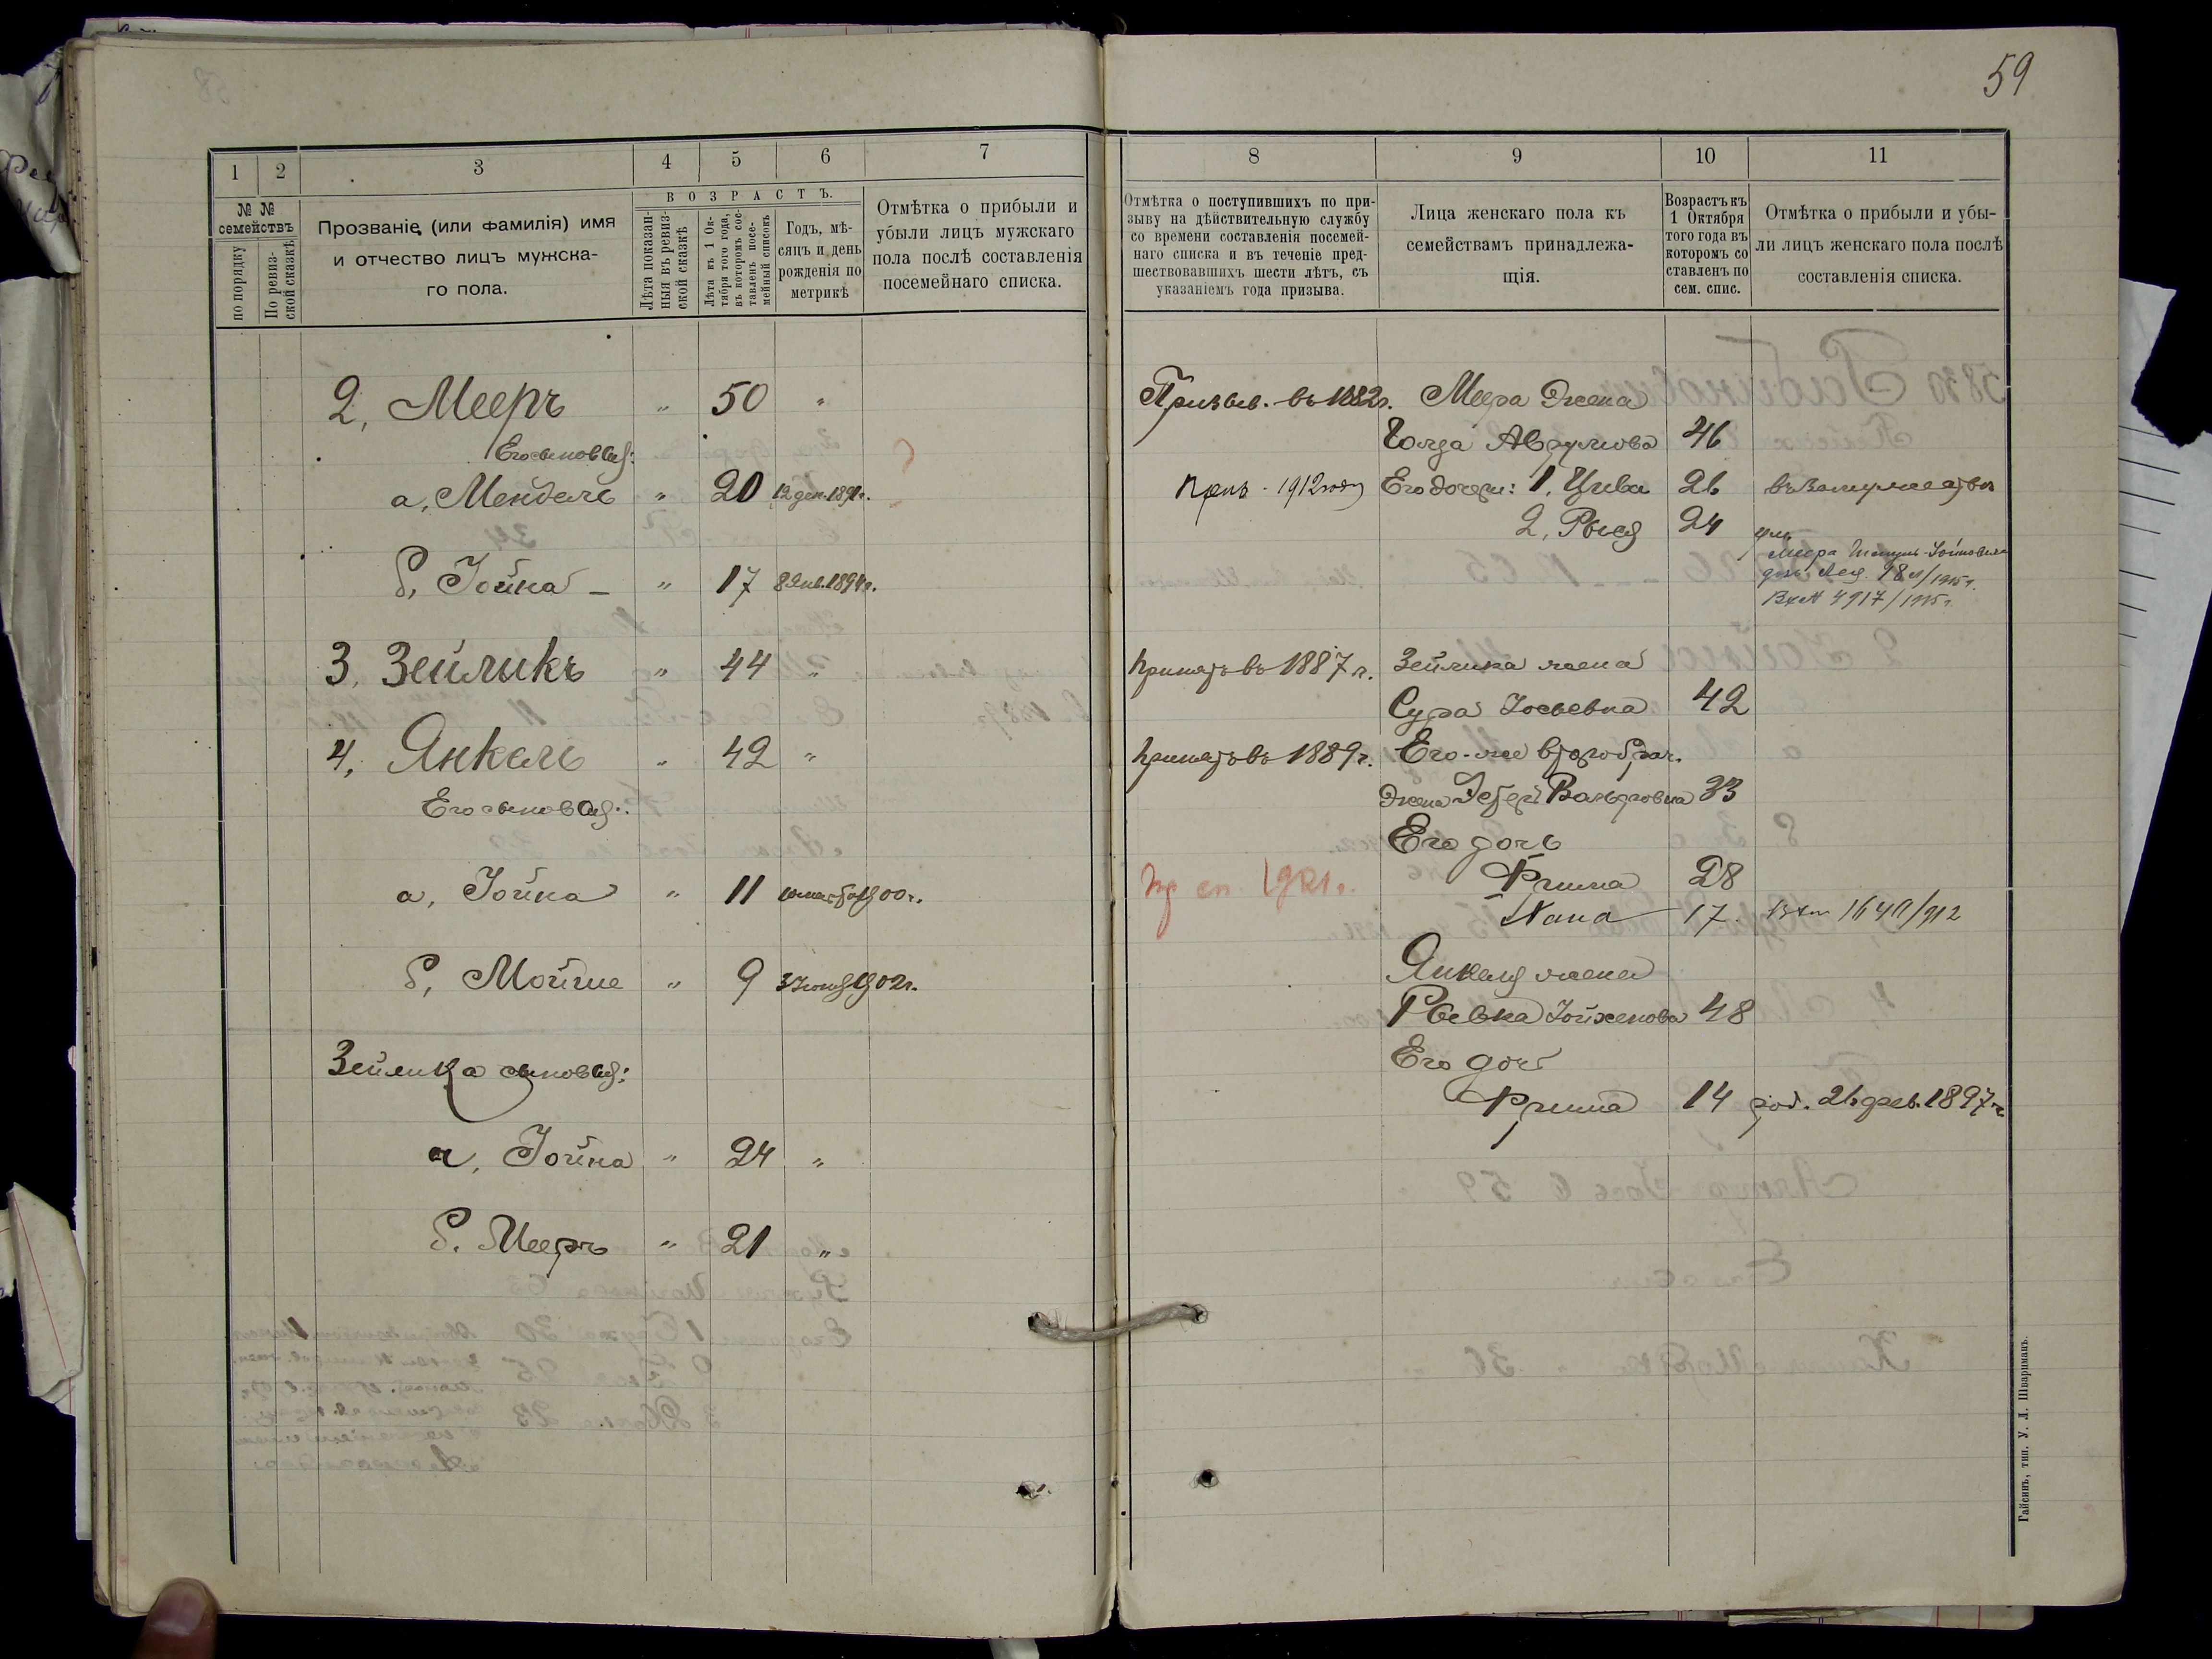 59
1
2
3
4
5
6
7
№ №
семействъ
по порядку
По ревиз-
ской сказкѣ
Прозваніе (или фамилія) имя
и отчество лицъ мужска-
го пола.
ВОЗРАСТЪ.
Лѣта показан-
ныя въ ревиз-
ской сказкѣ
Лѣта къ 1 Ок-
тября того года,
въ которомъ сос-
тавленъ посе-
мейный списокъ
Годъ, мѣ-
сяцъ и день
рожденія по
метрикѣ
Отмѣтка о прибыли и
убыли лицъ мужскаго
пола послѣ составленія
посемейнаго списка.
2, Мееръ " 50 "
Его сыновья:
а, Мендель " 20 12 дек. 1891 г.
б, Іойна - " 17 8 Янв. 1894 г.
3, Зейликъ " 44 "
4, Янкель " 42 "
Его сыновья:
а, Іойна " 11 1900 г.
б, Мойше " 9 1902 г.
Зейлика сыновья:
а, Іойна " 24 "
б. Мееръ " 21 "
8
9
10
11
Отмѣтка о поступившихъ по при-
зыву на дѣйствительную службу
со времени составленія посемей-
наго списка и въ теченіе пред-
шествовавшихъ шести лѣтъ, съ
указаніемъ года призыва.
Лица женскаго пола къ
семействамъ принадлежа-
щія.
Возрастъ къ
1 Октября
того года въ
которомъ со
ставленъ по
сем. спис.
Отмѣтка о прибыли и убы-
ли лицъ женскаго пола послѣ
составленія списка.
Призыв. въ 1882 г. Меера жена
Голда Аврумова 46
1912 году Его дочери: 1, Цивья 26 въ замужествѣ
2, Рыся 24
4917/1915 г.
принятъ въ 1887 г. Зейлика жена
Сура Іосьевна 42
принятъ въ 1889 г. Его-же второбрач.
жена Эстеръ Вольковна 33
Его дочь
1921 г. Фрима 28
Хана 17. 1641/912
Янкеля жена
Ривка Іойхенова 48
Его дочь
Фрима 14 род. 21 фев. 1897 г.
Гайсинъ, тип. У. Л. Шварцманъ.